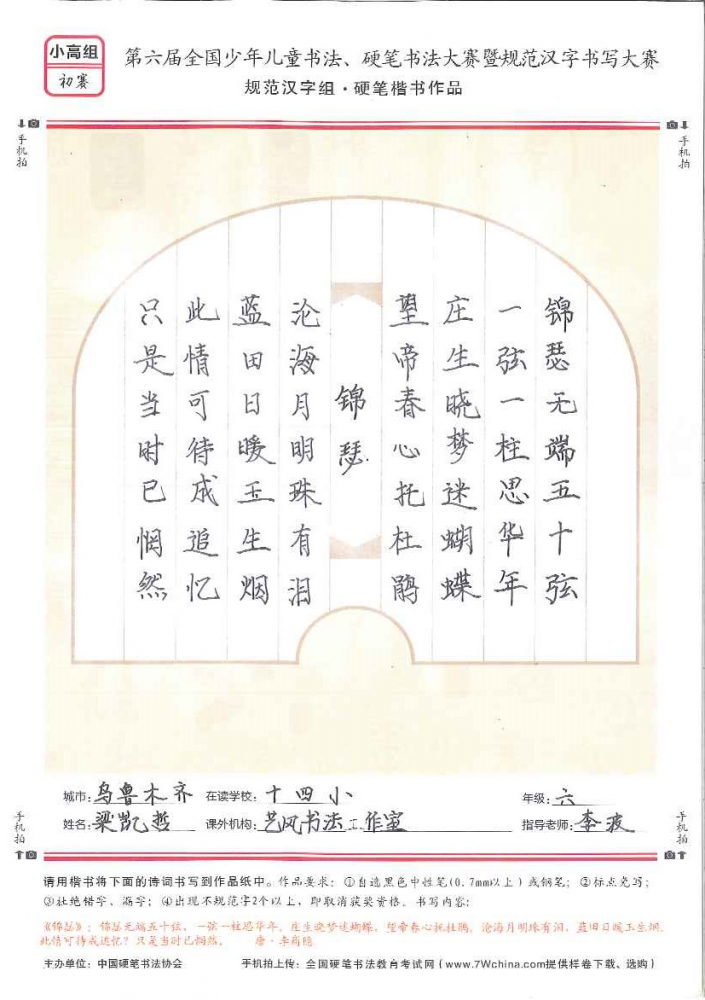 小高组
初赛
第六届全国少年儿童书法、硬笔书法大赛暨规范汉字书写大赛
规范汉字组·硬笔楷书作品
手机拍
手机拍
锦瑟无端五十弦
一弦一柱思华年
庄生晓梦迷蝴蝶
望帝春心托杜鹃
锦瑟
沧海月明珠有泪
蓝田日暖玉生烟
此情可待成追忆
只是当时已惘然
城市:乌鲁木齐 在读学校:十四小 年级:六
姓名:梁凯哲 课外机构:艺风书法工作室 指导老师:李波
手机拍
手机拍
请用楷书将下面的诗词书写到作品纸中。作品要求:①自选黑色中性笔(0.7mm以上)或钢笔;②标点免写;
③杜绝错字、漏字;④出现不规范字2个以上,即取消获奖资格。书写内容:
《锦瑟》:锦瑟无端五十弦,一弦一柱思华年。庄生晓梦迷蝴蝶,望帝春心托杜鹃。沧海月明珠有泪,蓝田日暖玉生烟。
此情可待成追忆?只是当时已惘然。 唐·李商隐
主办单位:中国硬笔书法协会 手机拍上传:全国硬笔书法教育考试网(www.7Wchina.com提供样卷下载、选购)